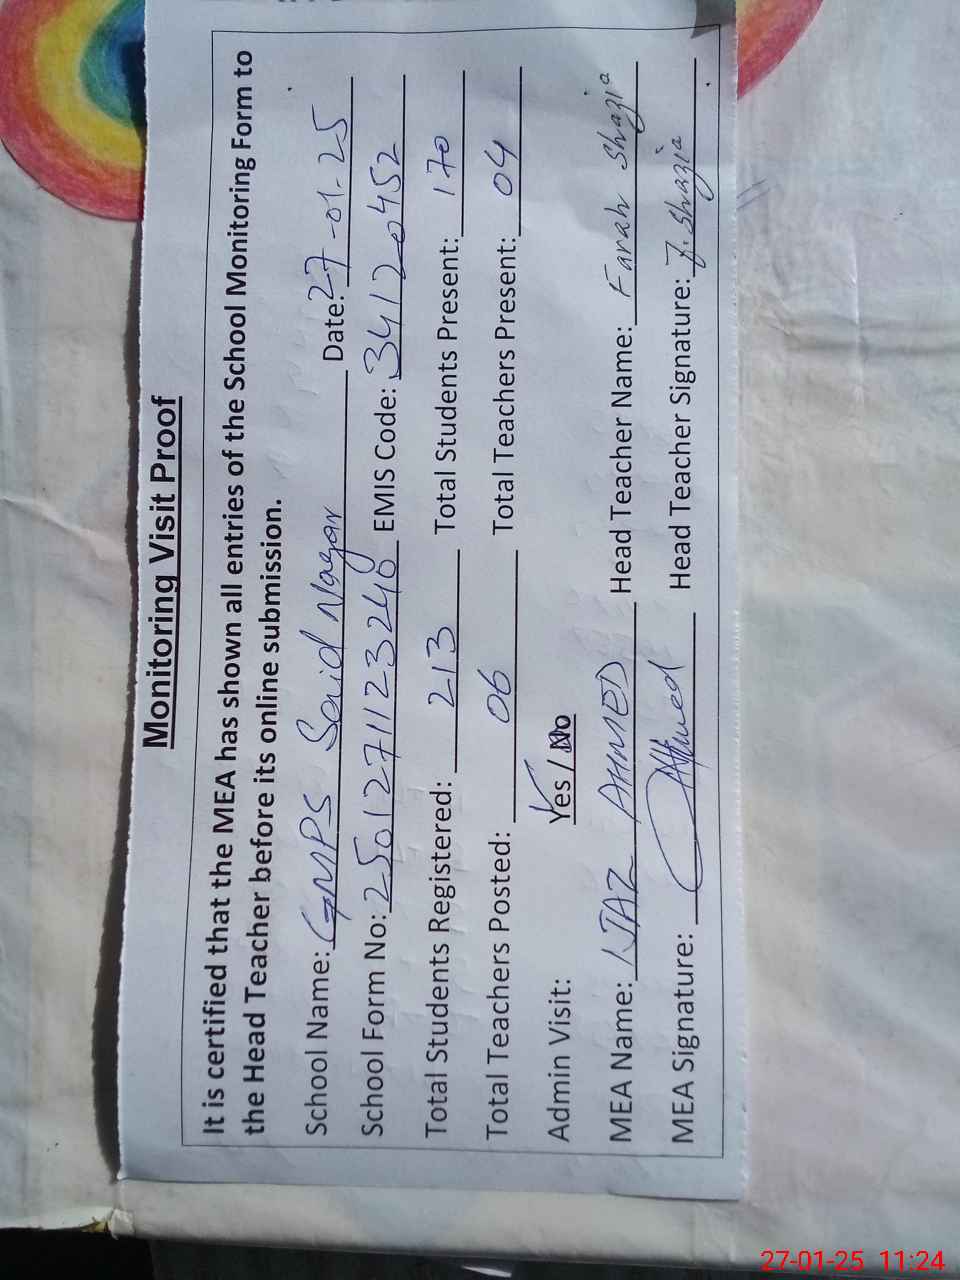 Monitoring Visit Proof
It is certified that the MEA has shown all entries of the School Monitoring Form to
the Head Teacher before its online submission.
School Name: GMPS Said Nagar Date: 27-01-25
School Form No: 25012711123246 EMIS Code: 34120452
Total Students Registered: 213 Total Students Present: 170
Total Teachers Posted: 06 Total Teachers Present: 04
Admin Visit: Yes / No
MEA Name: IJAZ AHMED Head Teacher Name: Farah Shazia
MEA Signature: Ahmed Head Teacher Signature: F. Shazia
27-01-25 11:24